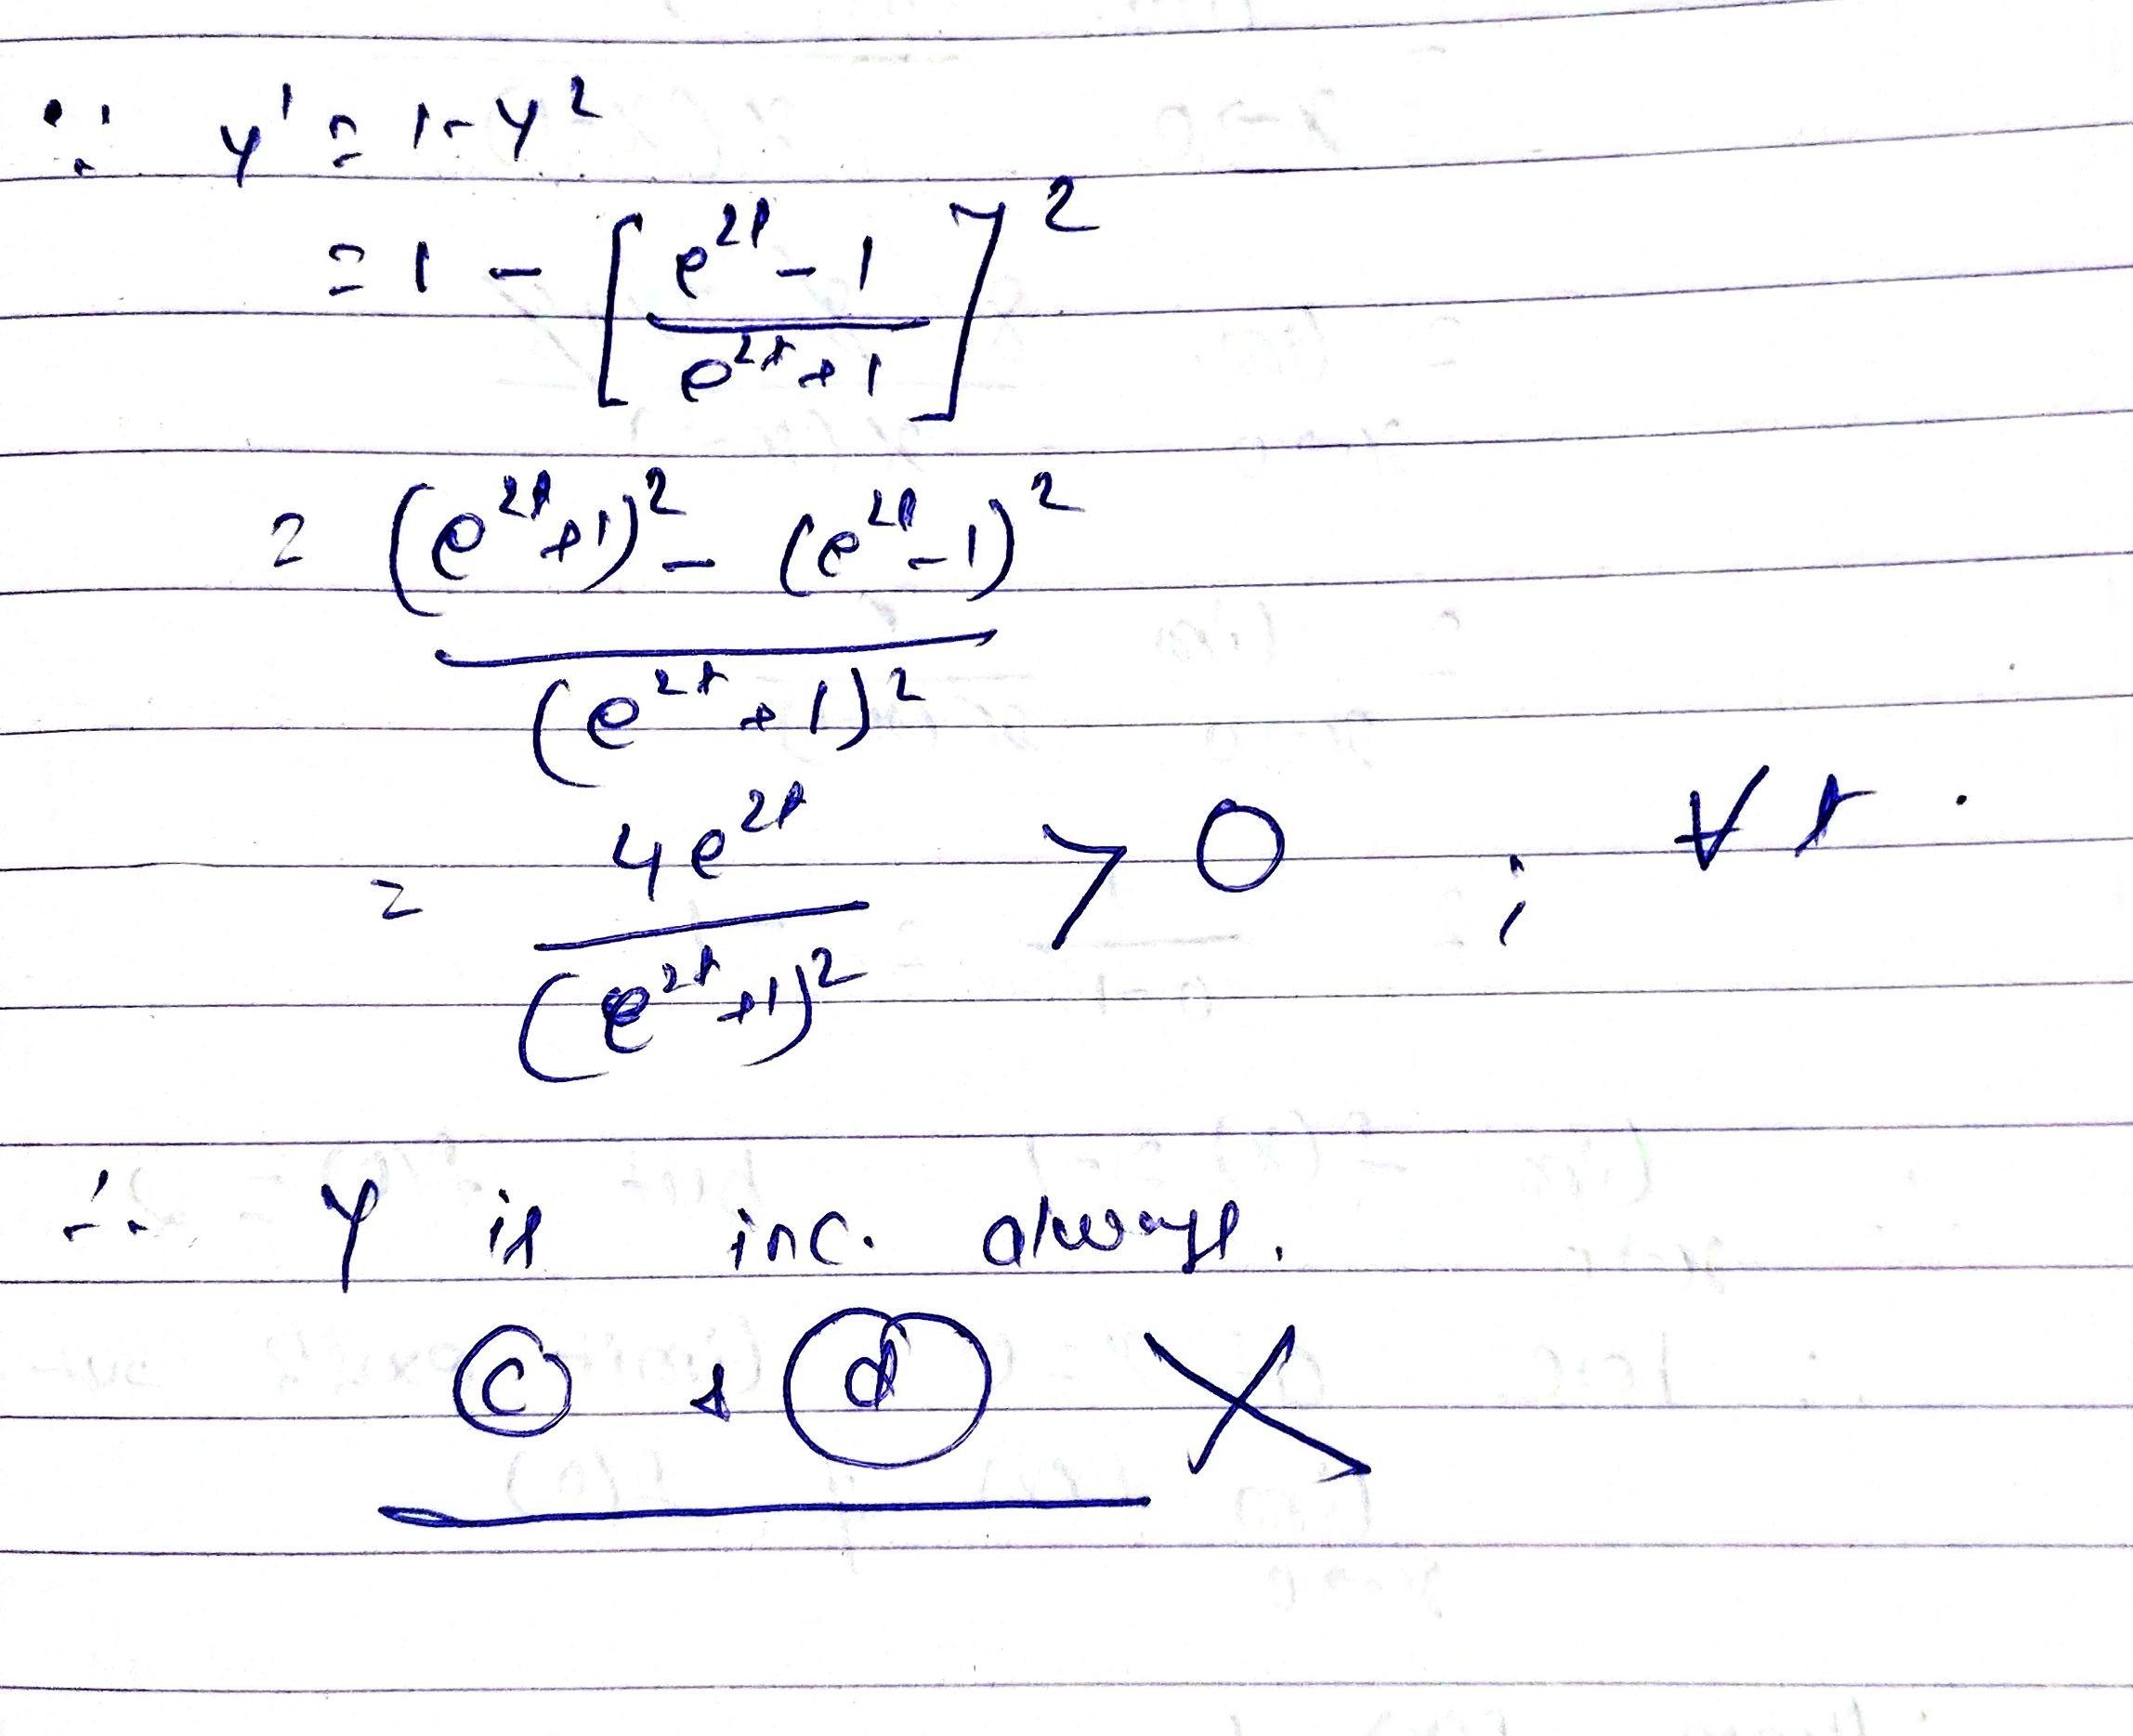 ∵ y' = 1 - y²
= 1 - [(e²ᵗ - 1)/(e²ᵗ + 1)]²
= ((e²ᵗ + 1)² - (e²ᵗ - 1)²)/(e²ᵗ + 1)²
= 4e²ᵗ/(e²ᵗ + 1)² > 0 ; ∀ t.
∴ y is inc. always.
ⓒ & ⓓ ✗